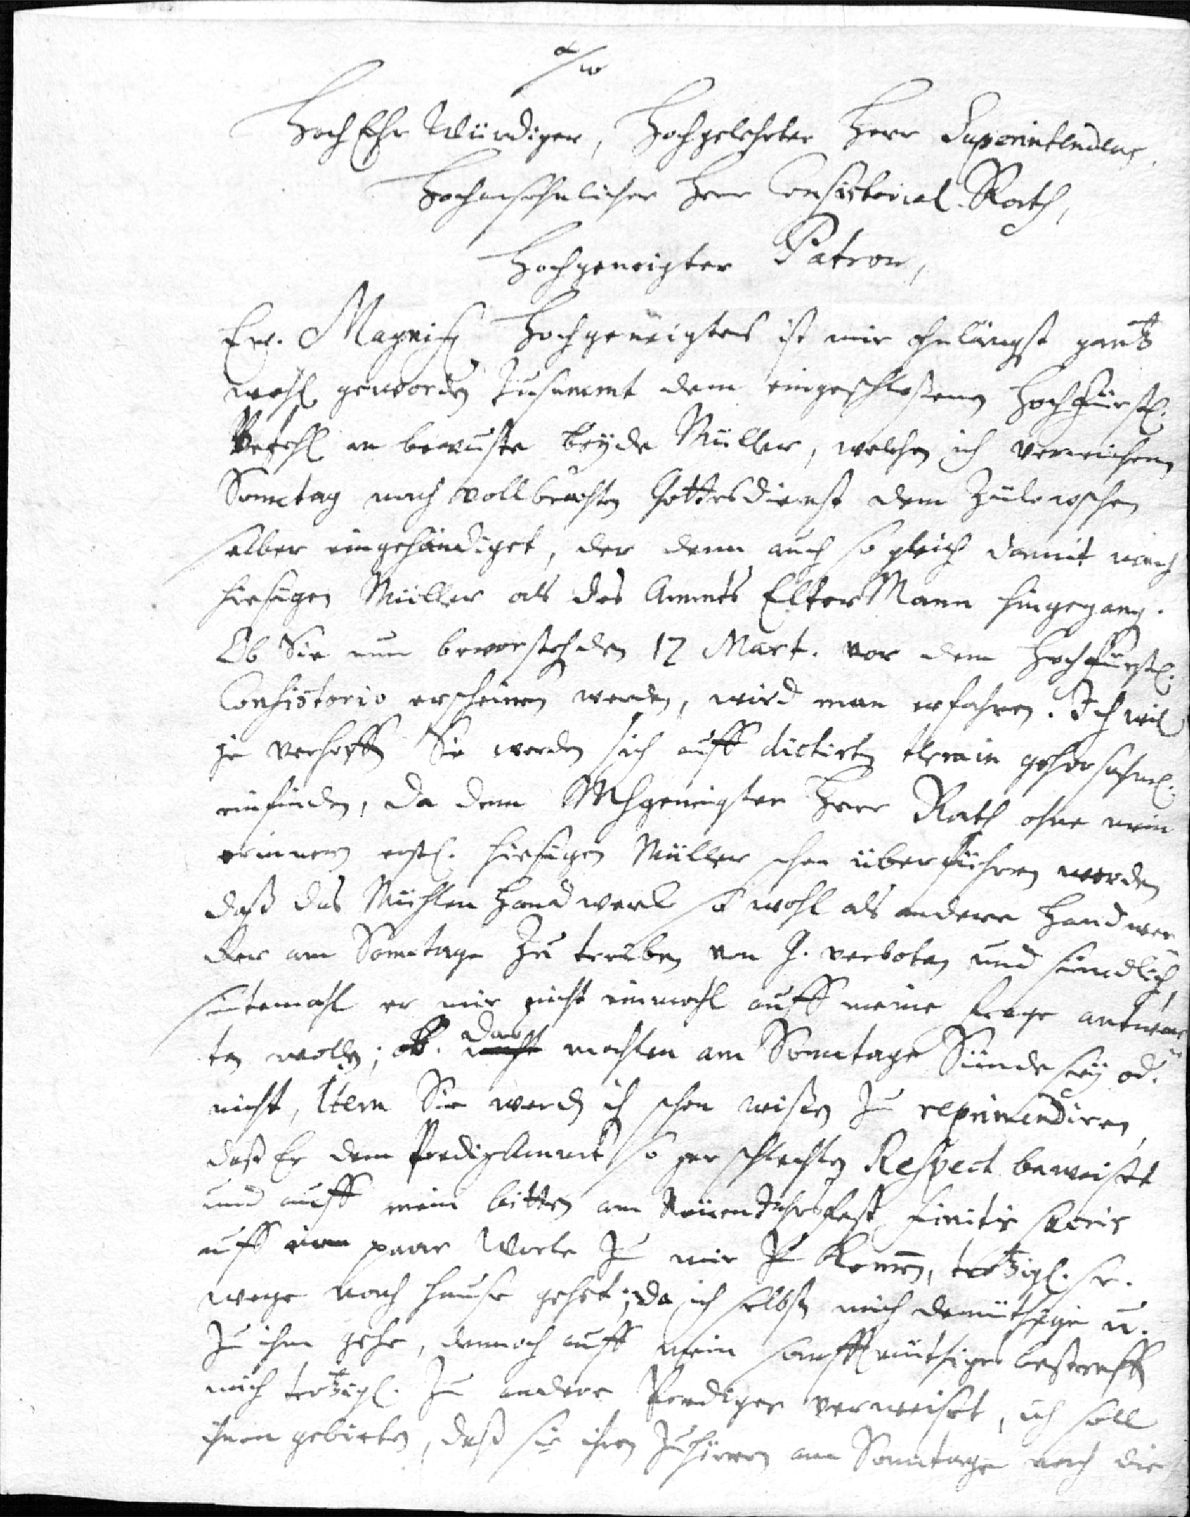 HochEhrWürdiger, Hochgelehrter Herr Superintendens,
Hochansehnlicher Herr Consistorial-Rath,
Hochgeneigter Patron,
Ew. Magnif. Hochgeneigtes ist mir ohnlängst gantz
wohl geworden zusammt dem eingeschloßenen HochFürstl.
Befehl an bewuste beyde Müller, welchen ich verwichenen
Sonntag nach vollbrachten Gottesdienst dem Zülowschen
selber eingehändiget, der denn auch so gleich damit nach
hiesigen Müller als des Ammts ElterMann hingegang.
Ob Sie nun bevorstehden 17 Mart. vor dem Hochfürstl.
Consistorio erscheinen werden, wird man erfahren. Ich wil
ja verhoffen Sie werden sich auff dictirten termin gehorsahml.
einfinden, da dem MHgeneigter Herr Rath ohne mein
erinnern erstl. hiesigen Müller schon überführen werden
daß das Mühlen Handwerk so wohl als andere Handwer
cker am Sonntage zu treiben von G. verboten und sündlich
sintemahl er mir nicht einmahl auff meine Frage antwor
ten wollen; ob. das mahlen am Sonntage Sünde sey od.
nicht, Item Sie werden ihn schon wißen zu reprimendiren,
daß Er dem PredigtAmmt so gar schlechten Respect beweiset
und auff mein bitten am NeuenJahrsfest finitis sacris
auff ein paar Worte zu mir zu kommen, trotzigl. sr.
wege nach Hause gehet; da ich selbst mich demüthige u.
zu ihm gehe, dennoch auff mein sanfftmüthiges bestraffen
mich trotzigl. zu andere Prediger verweiset, ich soll
ihnen gebieten, daß sie ihren Zuhörern am Sonntage nach die